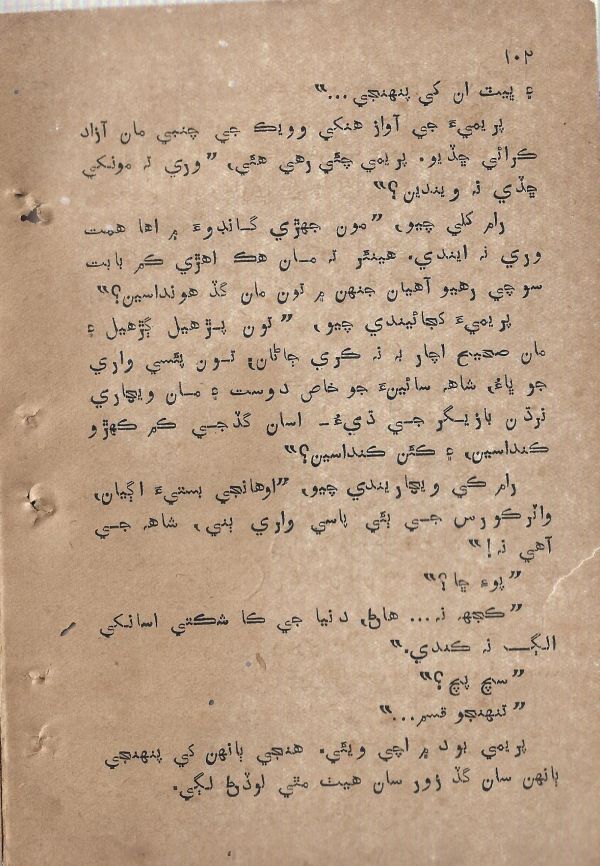 ۱۰۲
۽ ڀيٽ ان کي پنهنجي..."
پريميءَ جي آواز هنکي وويڪ جي چنبي مان آزاد
ڪرائي ڇڏيو. پريمي چئي رهي هئي، "وري تہ مونکي
ڇڏي نہ ويندين؟"
رام کلي چيو، "مون جهڙي گانڊوءَ ۾ اها همت
وري نہ ايندي. هينئر تہ مان هڪ اهڙي ڪم بابت
سوچي رهيو آهيان جنهن ۾ تون مان گڏ هونداسين؟"
پريميءَ کڄائيندي چيو، "تون پڙهيل ڳڙهيل ۽
مان صحيح اچار بہ نہ ڪري ڄاڻان، تون پئسي واري
جو ڀاءُ، شاهہ سائينءَ جو خاص دوست ۽ مان ويچاري
نرڌن بازيگر جي ڌيءُ۔ اسان گڏجي ڪم ڪهڙو
ڪنداسين، ۽ ڪٿن ڪنداسين؟"
رام کي ويچاريندي چيو، "اوهانجي بستيءَ اڳيان،
واٽرڪورس جي ٻئي پاسي واري ٻني، شاهہ جي
آهي نہ!"
"پوءِ ڇا؟"
"ڪجهہ نہ... هاڻ دنيا جي ڪا شڪتي اسانکي
الڳ نہ ڪندي."
"سچ پچ؟"
"تنهنجو قسم..."
پريمي ٻوڏ ۾ اچي ويئي. هنجي ٻانهن کي پنهنجي
ٻانهن سان گڏ زور سان هيٺ مٿي لوڏڻ لڳي.